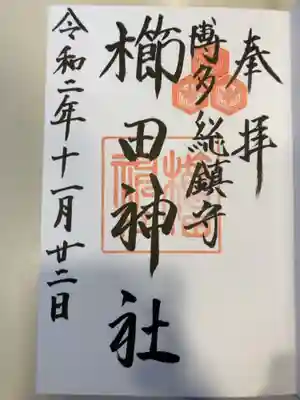 奉拝
博多総鎮守
櫛田神社
令和二年十一月廿二日